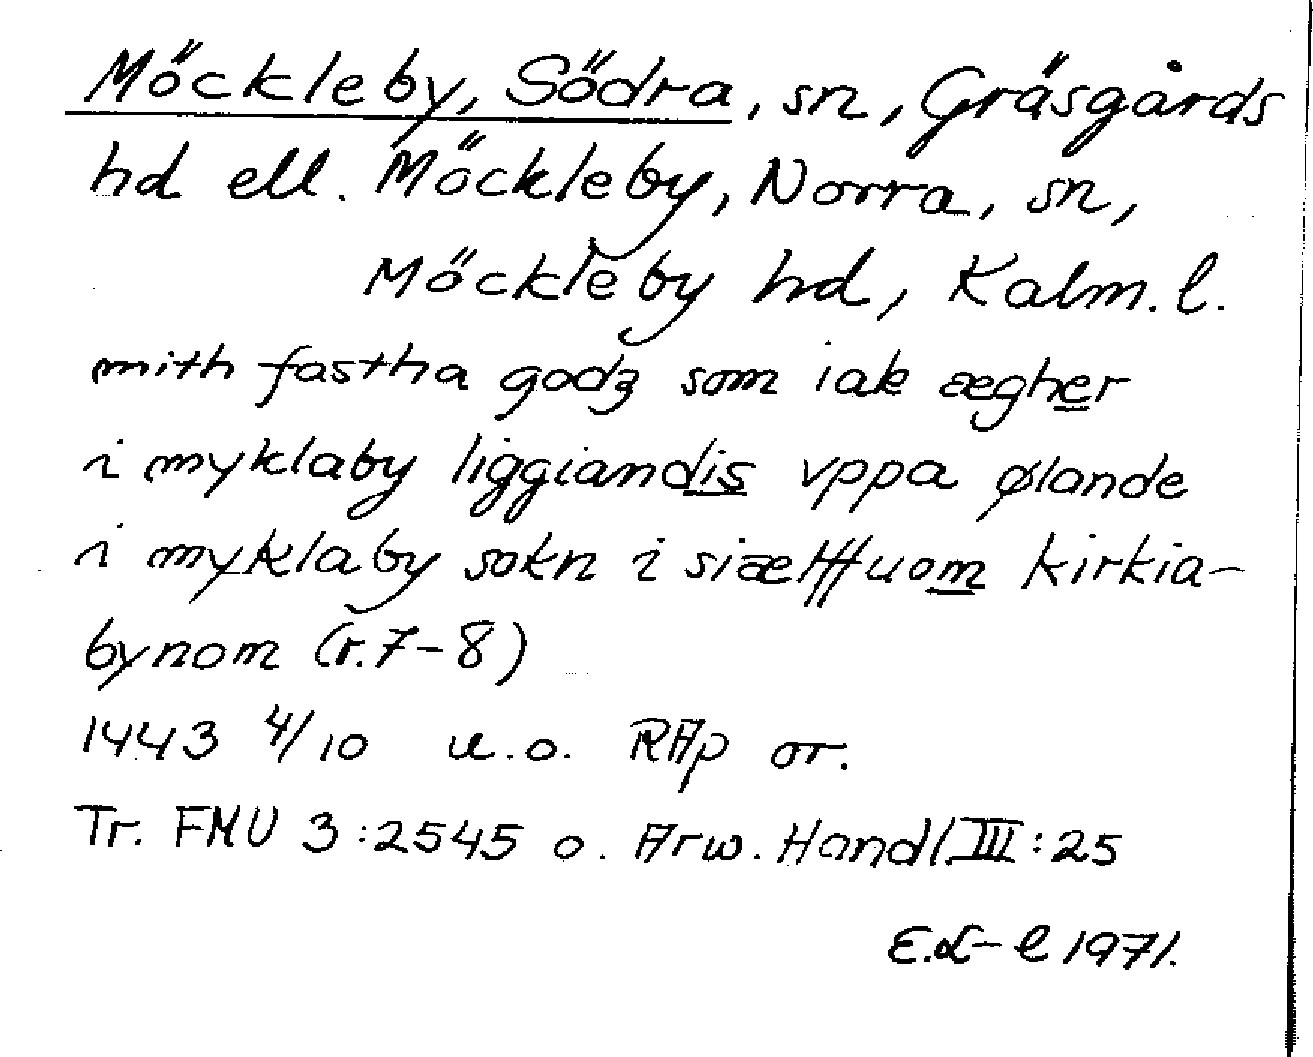 Möckleby, Södra, sn, Gräsgårds
hd ell. Möckleby, Norra, sn,
Möckleby hd, Kalm. l.
mith fastha godʒ som iak ægher
i myklaby liggiandis vppa ølande
i myklaby sokn i siælffuom kirkia-
bynom (r. 7-8)
1443 4/10 u.o. RAp or.
Tr. FMU 3:2545 o. Arw. Handl III:25
E.L-l 1971.